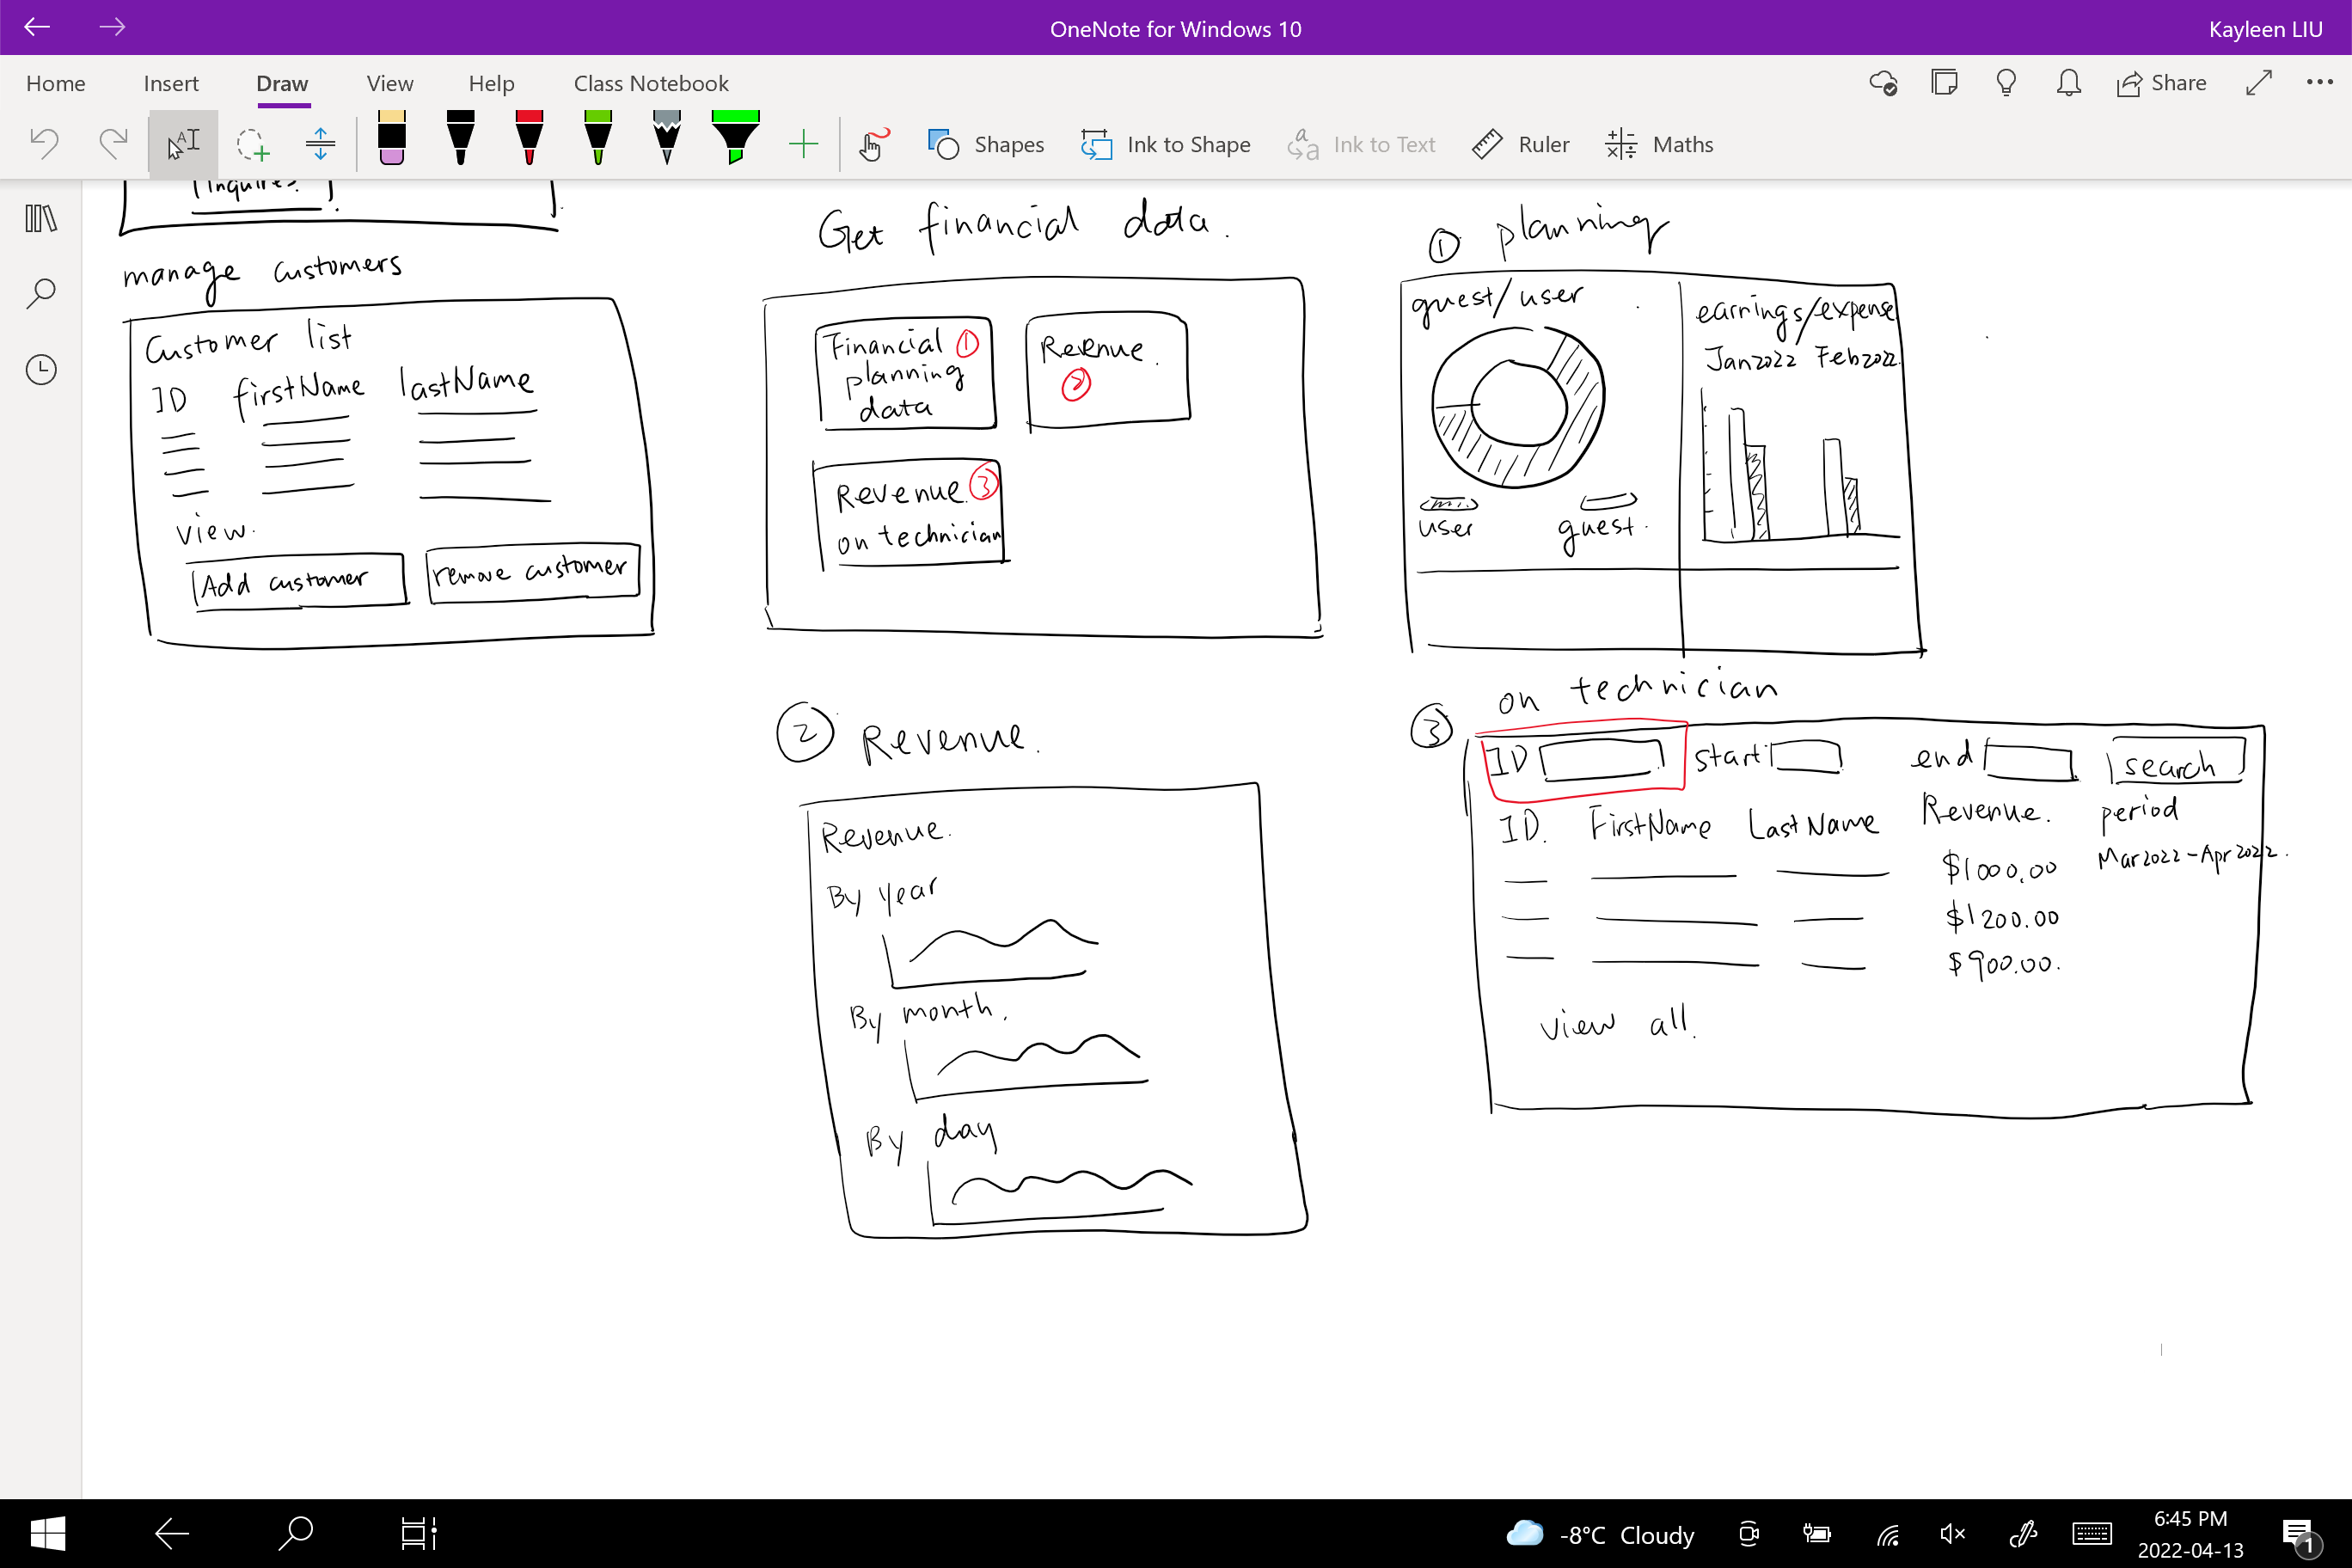 OneNote for Windows 10
Kayleen LIU
Home Insert Draw View Help Class Notebook
Share
Shapes Ink to Shape Ink to Text Ruler Maths
inquires.
manage customers
Customer list
ID firstName lastName
view.
Add customer remove customer
Get financial data.
Financial ①
planning
data
Revenue.
②
Revenue. ③
on technician
① planning
guest/user
user guest.
earnings/expense
Jan2022 Feb2022
② Revenue.
Revenue.
By year
By month.
By day
③ on technician
ID start end search
ID. FirstName LastName Revenue. period
$1000.00 Mar2022-Apr2022.
$1200.00
$900.00.
view all.
-8°C Cloudy
6:45 PM
2022-04-13
1